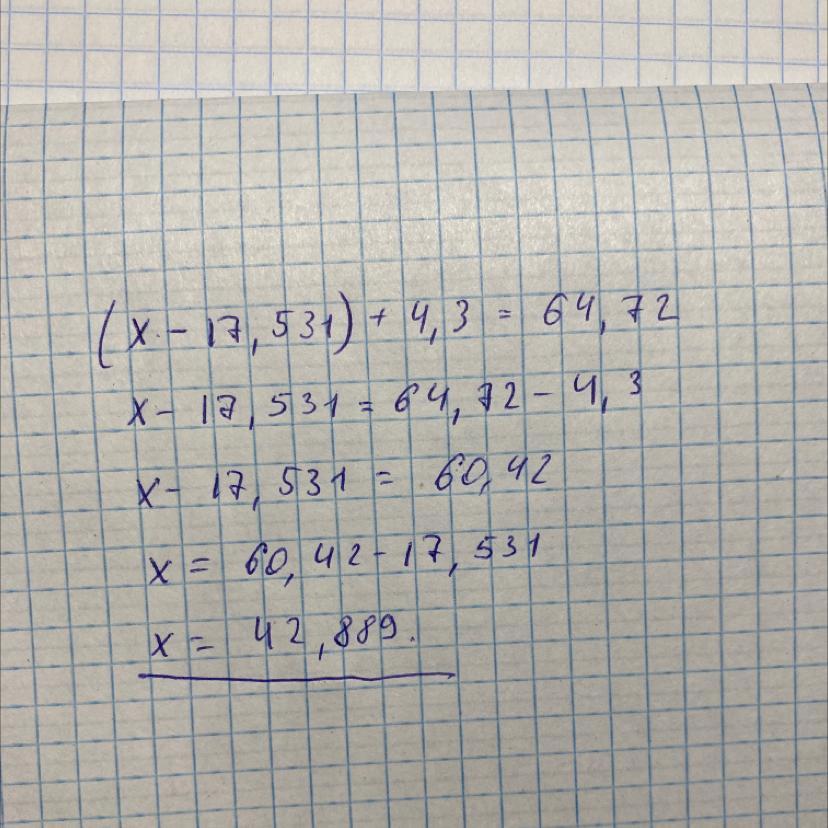 (x - 17,531) + 4,3 = 64,72
x - 17,531 = 64,72 - 4,3
x - 17,531 = 60,42
x = 60,42 - 17,531
x = 42,889.